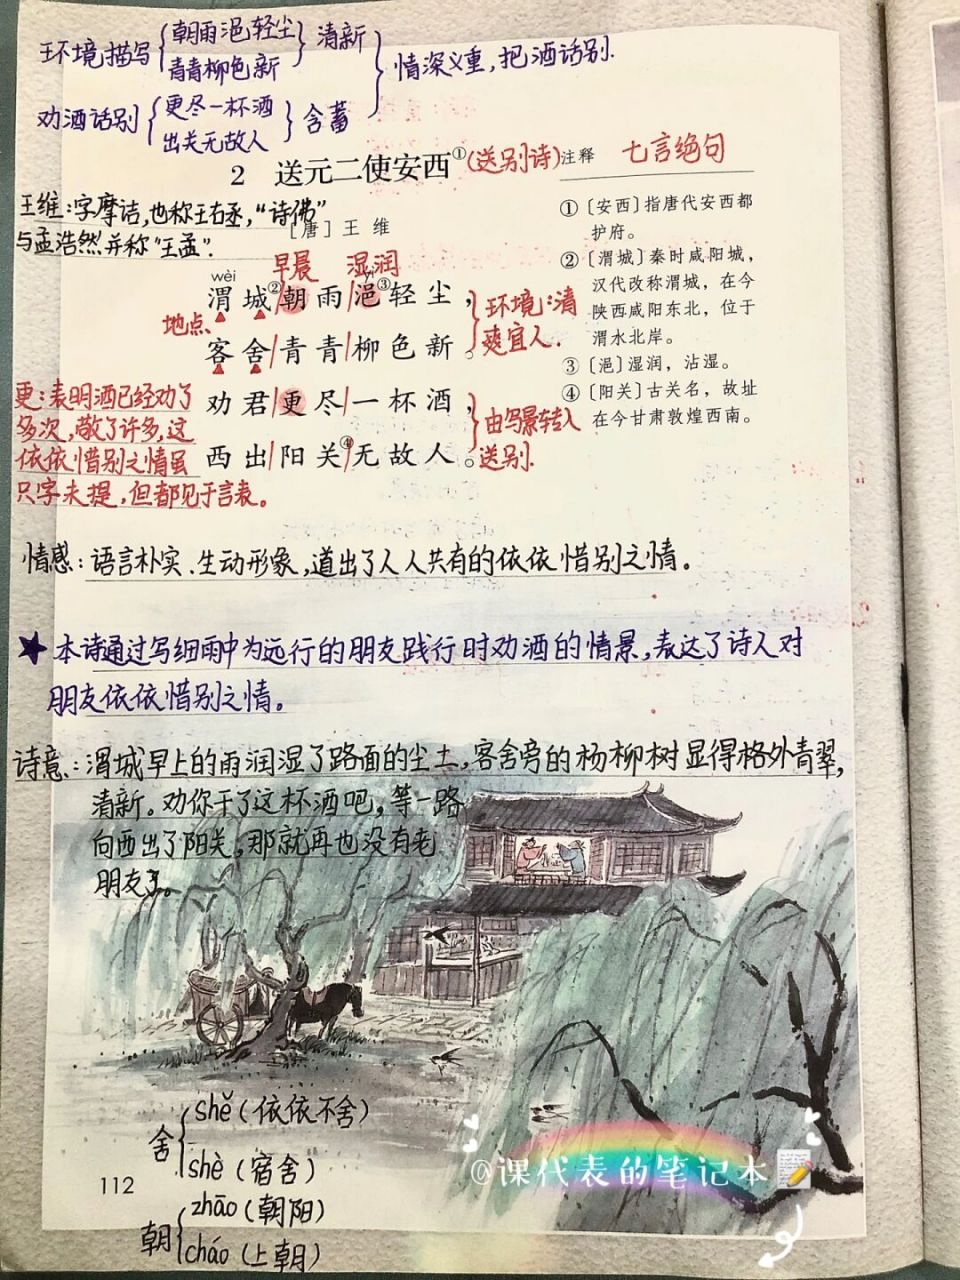 环境描写 朝雨浥轻尘 清新
青青柳色新
情深义重,把酒话别.
劝酒话别 更尽一杯酒 含蓄
出关无故人
2 送元二使安西① (送别诗) 注释 七言绝句
王维:字摩诘,也称王右丞,“诗佛”
与孟浩然并称“王孟”.
[唐] 王 维
早晨 湿润
wèi yì
渭城②朝雨浥③轻尘,
地点
客舍青青柳色新。
环境:清
爽宜人.
劝君更尽一杯酒,
西出阳关④无故人。
由写景转入
送别.
更:表明酒已经劝了
多次,敬了许多,这
依依惜别之情虽
只字未提,但都见于言表。
①〔安西〕指唐代安西都
护府。
②〔渭城〕秦时咸阳城,
汉代改称渭城,在今
陕西咸阳东北,位于
渭水北岸。
③〔浥〕湿润,沾湿。
④〔阳关〕古关名,故址
在今甘肃敦煌西南。
情感:语言朴实、生动形象,道出了人人共有的依依惜别之情。
★本诗通过写细雨中为远行的朋友践行时劝酒的情景,表达了诗人对
朋友依依惜别之情。
诗意:渭城早上的雨润湿了路面的尘土,客舍旁的杨柳树显得格外青翠,
清新。劝你干了这杯酒吧,等一路
向西出了阳关,那就再也没有老
朋友了。
舍 shě(依依不舍)
shè(宿舍)
朝 zhāo(朝阳)
cháo(上朝)
112
@课代表的笔记本